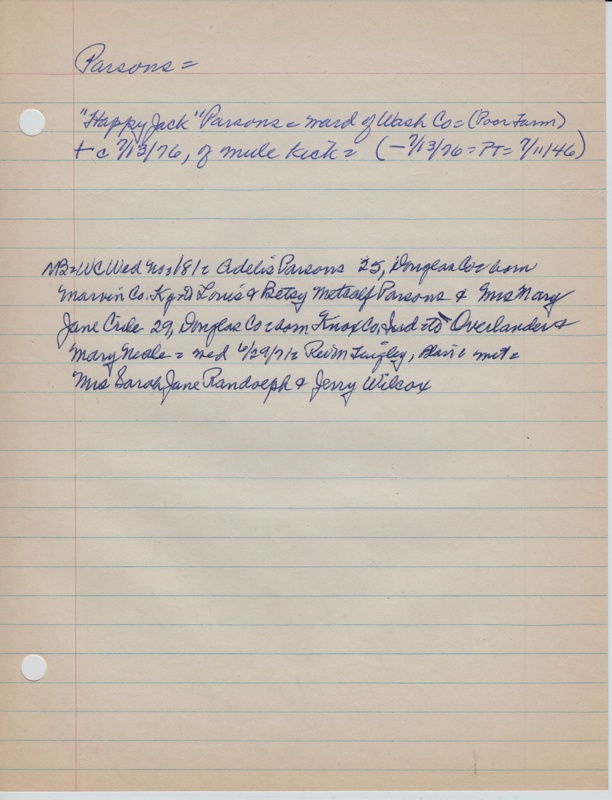 Parsons =
"Happy Jack" Parsons = ward of Wash Co = (Poor Farm)
+ c 7/13/76, of mule kick = (- 7/13/76 = PT = 7/11/46)
NB = WC Wed No 181 = Adelis Parsons 25, Douglas Co = born
Marvin Co. Ky = to Louis & Betsy Metcalf Parsons & Mrs Mary
Jane 29, Douglas Co = born Knox Co, Ind = to Overlander &
Mary Neale = wed 6/29/71 = Rev m = wit =
Mrs Sarah Jane Randolph & Jerry Wilcox